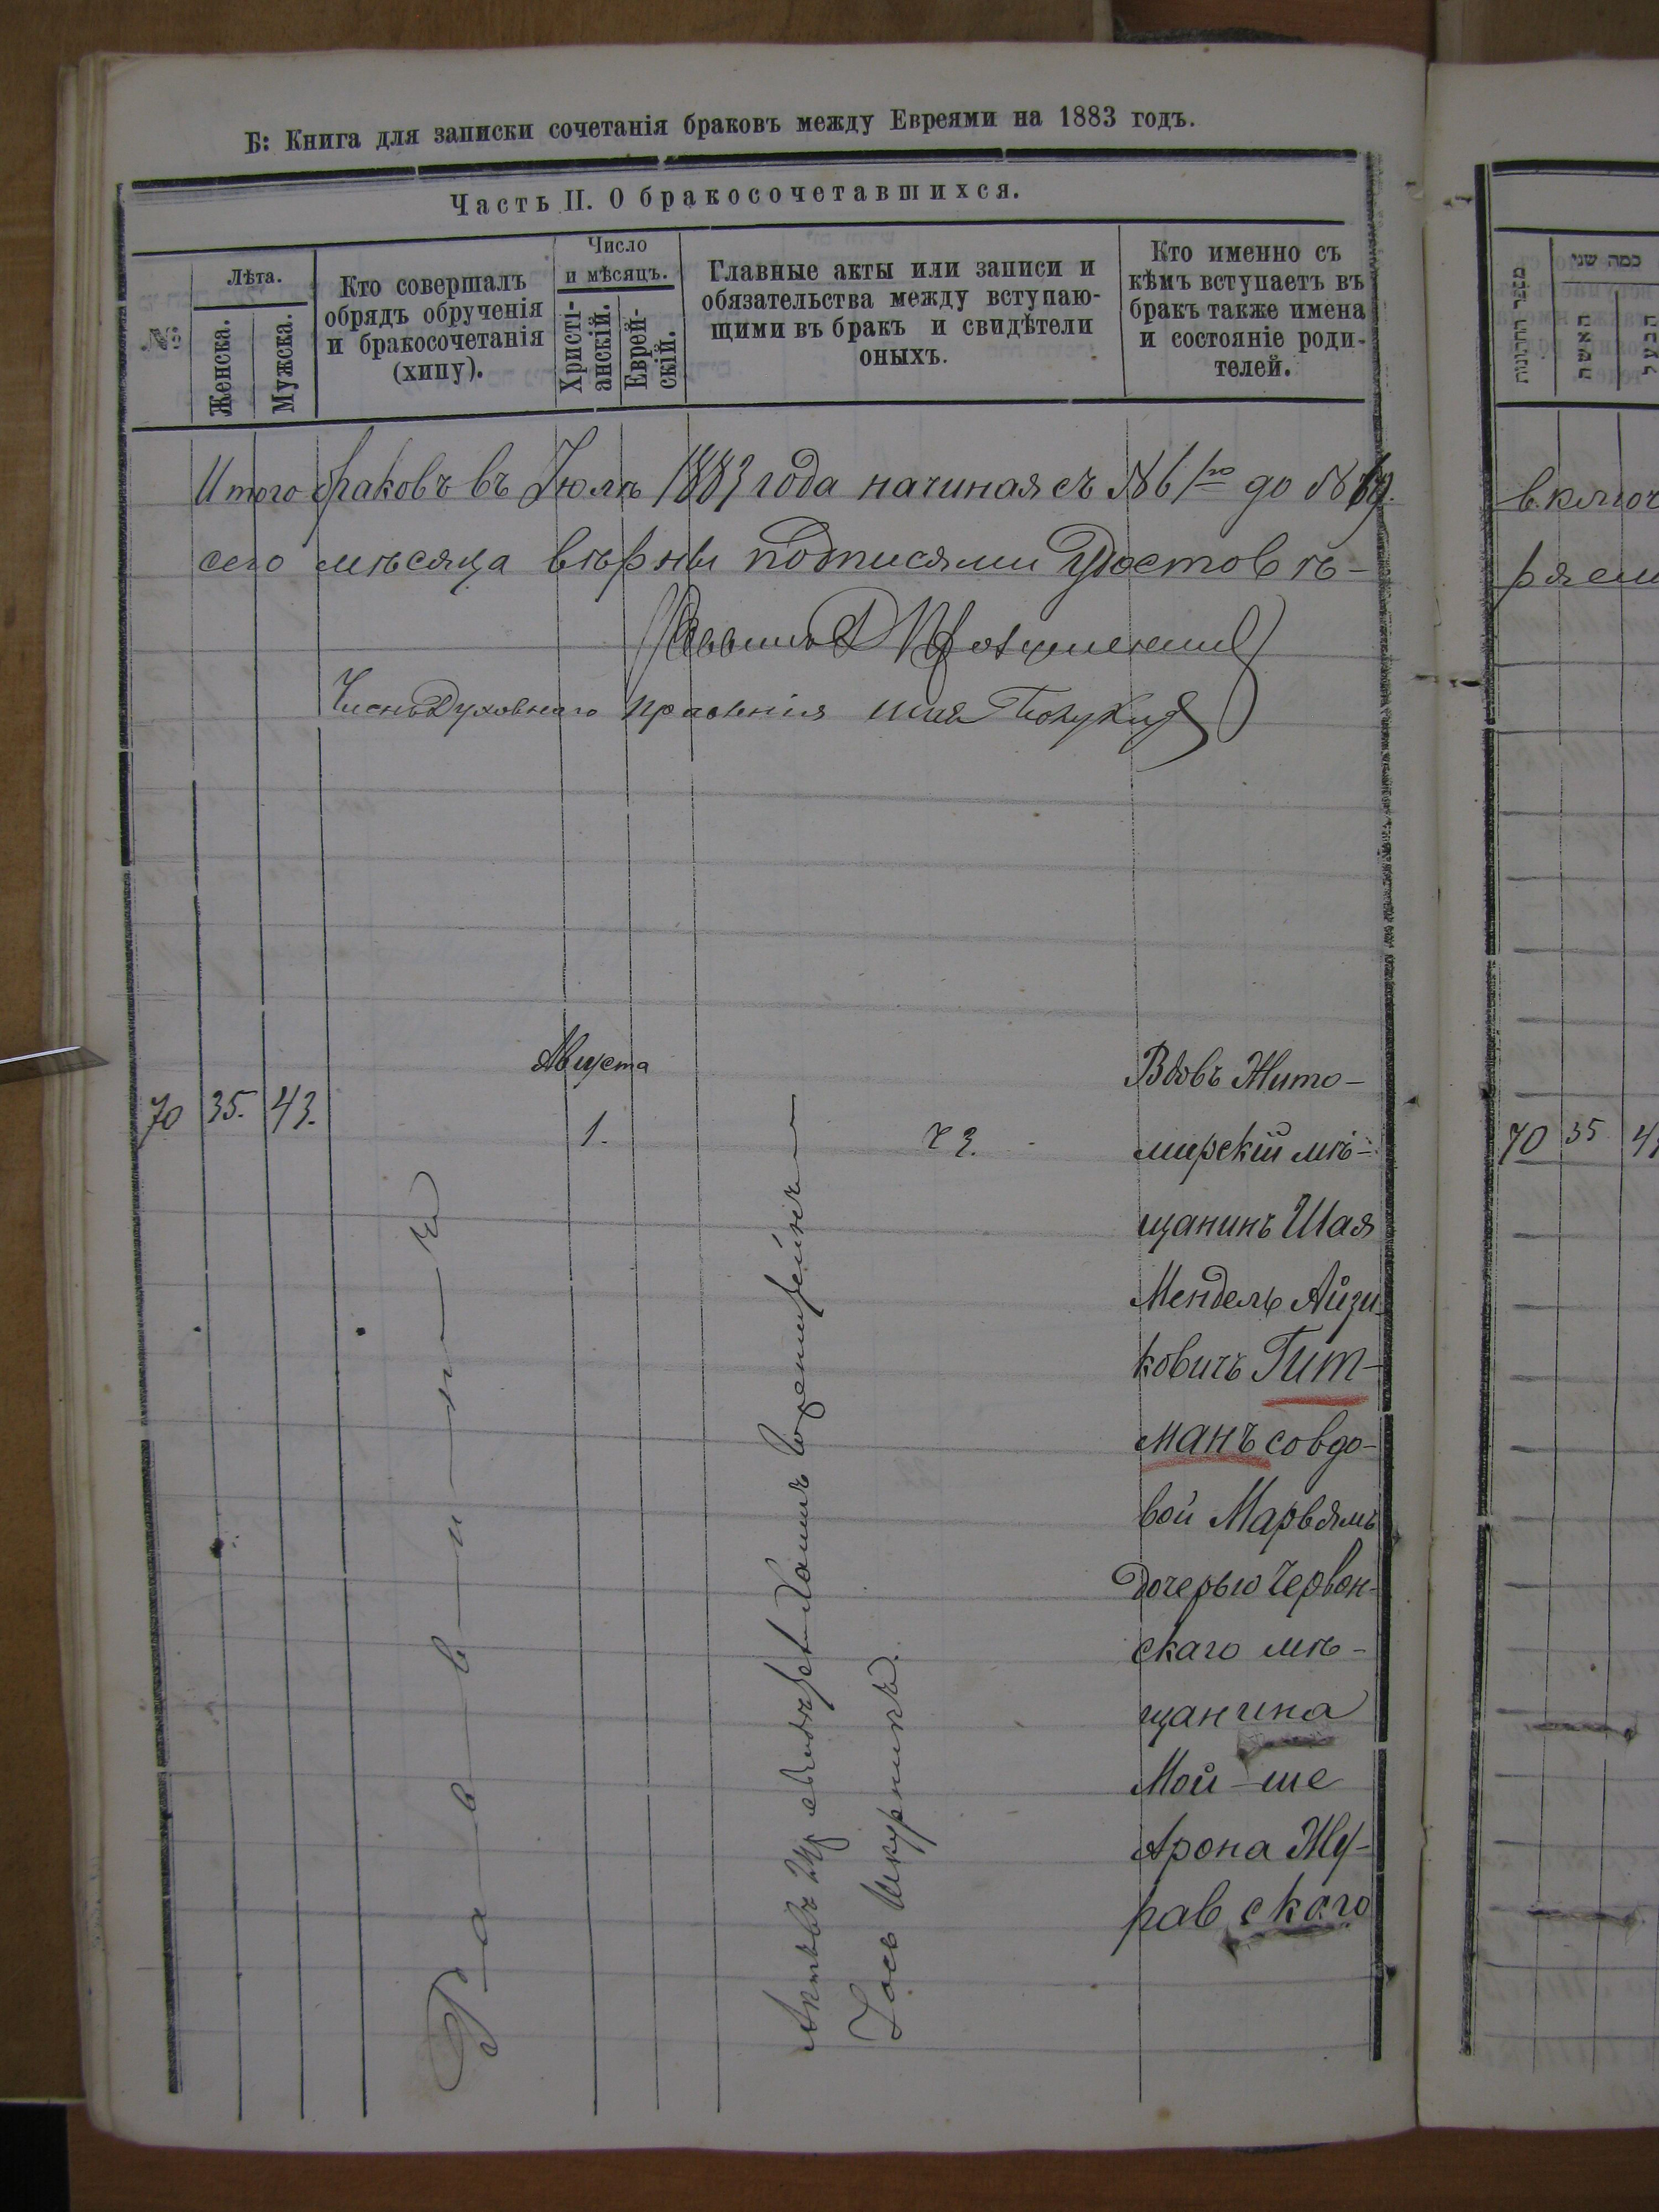 Б: Книга для записки сочетанія браковъ между Евреями на 1883 годъ.
Часть II. О бракосочетавшихся.
№
Лѣта.
Женска.
Мужска.
Кто совершалъ
обрядъ обрученія
и бракосочетанія
(хипу).
Число
и мѣсяцъ.
Христі-
анскій.
Еврей-
скій.
Главные акты или записи и
обязательства между вступаю-
щими въ бракъ и свидѣтели
оныхъ.
Кто именно съ
кѣмъ вступаетъ въ
бракъ также имена
и состояніе роди-
телей.
Итого браковъ въ Іюлѣ 1883 года начиная съ № 61го до № 69.
сего мѣсяца вѣрны подписями Удостовѣ-
Раввинъ
Членъ Духовнаго правленія Шая
70
35.
43.
Раввинъ
Августа
1.
Актъ въ
Іось Шкурникъ.
ч 3.
Вдовъ Жито-
мирскій мѣ-
щанинъ Шая
Мендель Айзи-
ковичъ Гит-
манъ со вдо-
вой Марьямъ
дочерью Червон-
скаго мѣ-
щанина
Мой-ше
Арона Жу-
равскаго
מספר החתונות
כמה שני
האשה
הבעל
включ
ряем
70
35